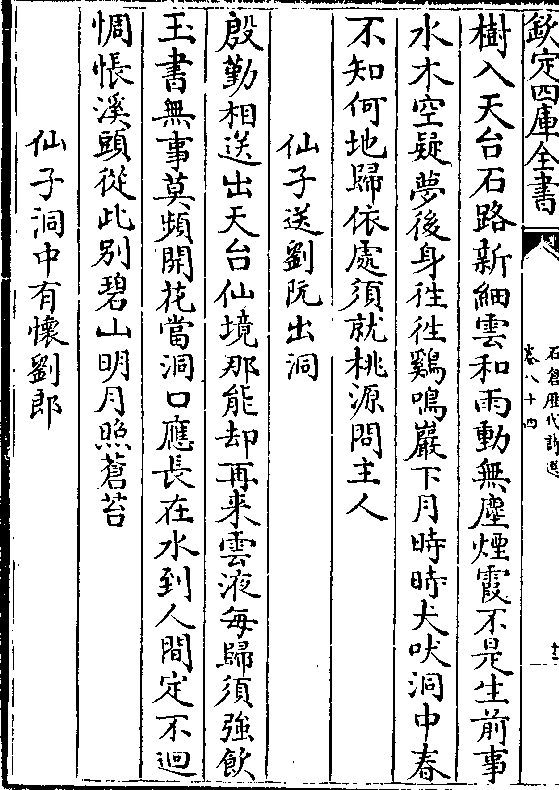 欽定四庫全書
石倉歷代詩選
卷八十四
十二
樹入天台石路新細雲和雨動無塵煙霞不是生前事
水木空疑夢後身往往鷄鳴巖下月時時犬吠洞中春
不知何地歸依處須就桃源問主人
仙子送劉阮出洞
殷勤相送出天台仙境那能却再来雲液每歸須強飲
玉書無事莫頻開花當洞口應長在水到人間定不迴
惆悵溪頭從此別碧山明月照蒼苔
仙子洞中有懷劉郎